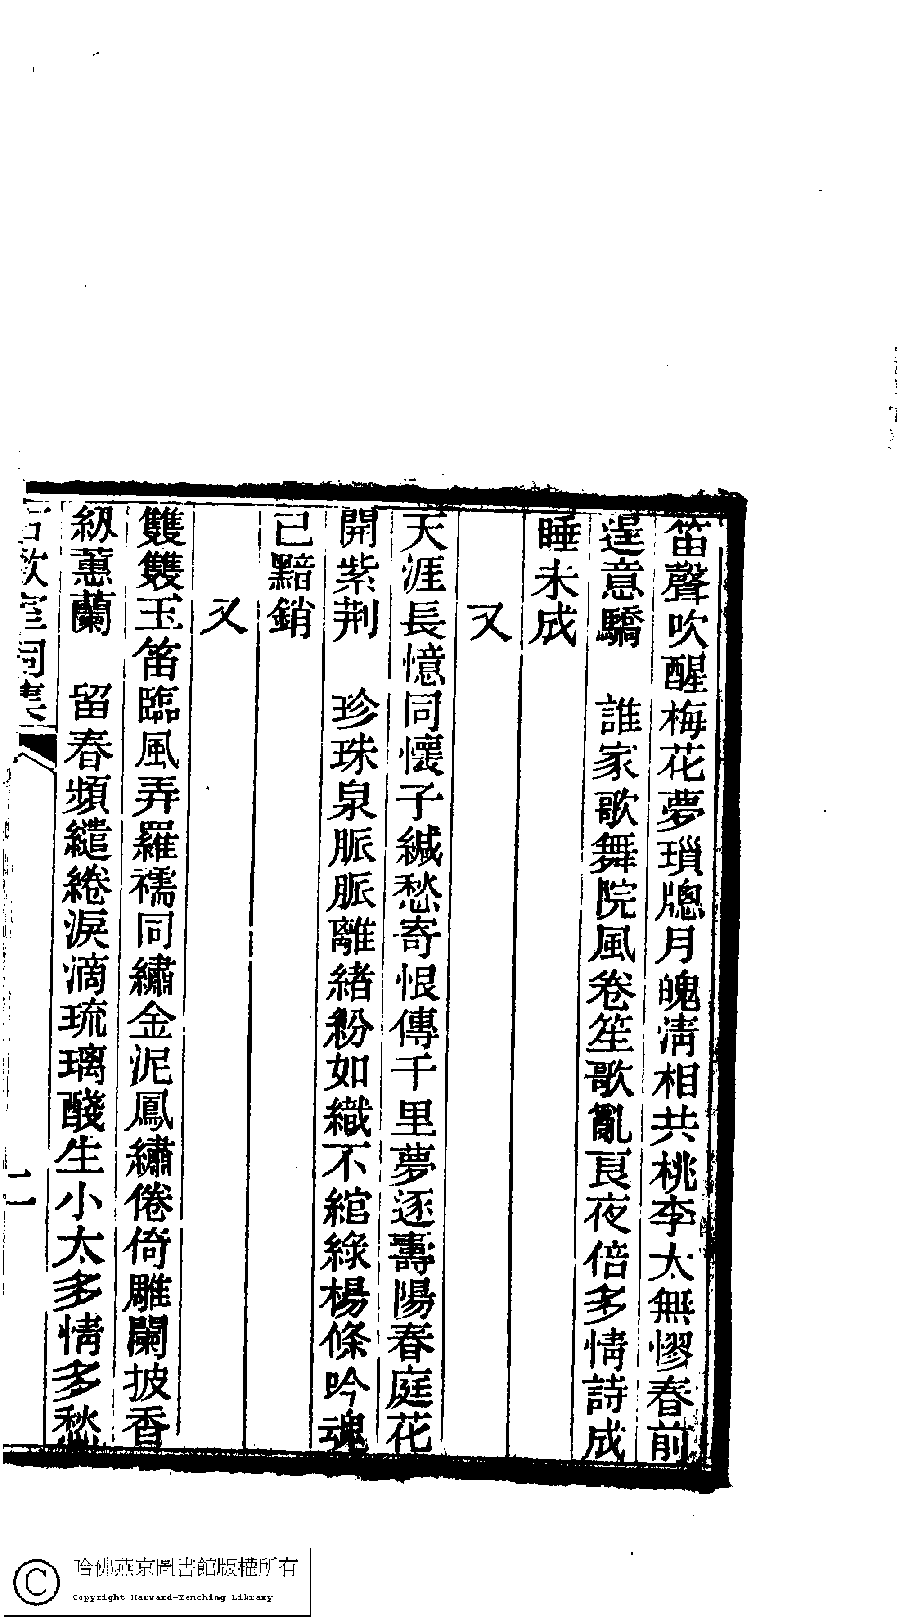 笛聲吹醒梅花夢瑣牕月魄淸相共桃李太無憀春前
逞意驕　誰家歌舞院風卷笙歌亂良夜倍多情詩成
睡未成
又
天涯長憶同懷子緘愁寄恨傳千里夢逐壽陽春庭花
開紫荆　珍珠泉脈脈離緒紛如織不綰綠楊條吟魂
已黯銷
又
雙雙玉笛臨風弄羅襦同繡金泥鳳繡倦倚雕闌披香
紉蕙蘭　留春頻繾綣淚滴琉璃醆生小太多情多愁
室詞集
二
哈佛燕京圖書館版權所有
Copyright Harvard-Yenching Library